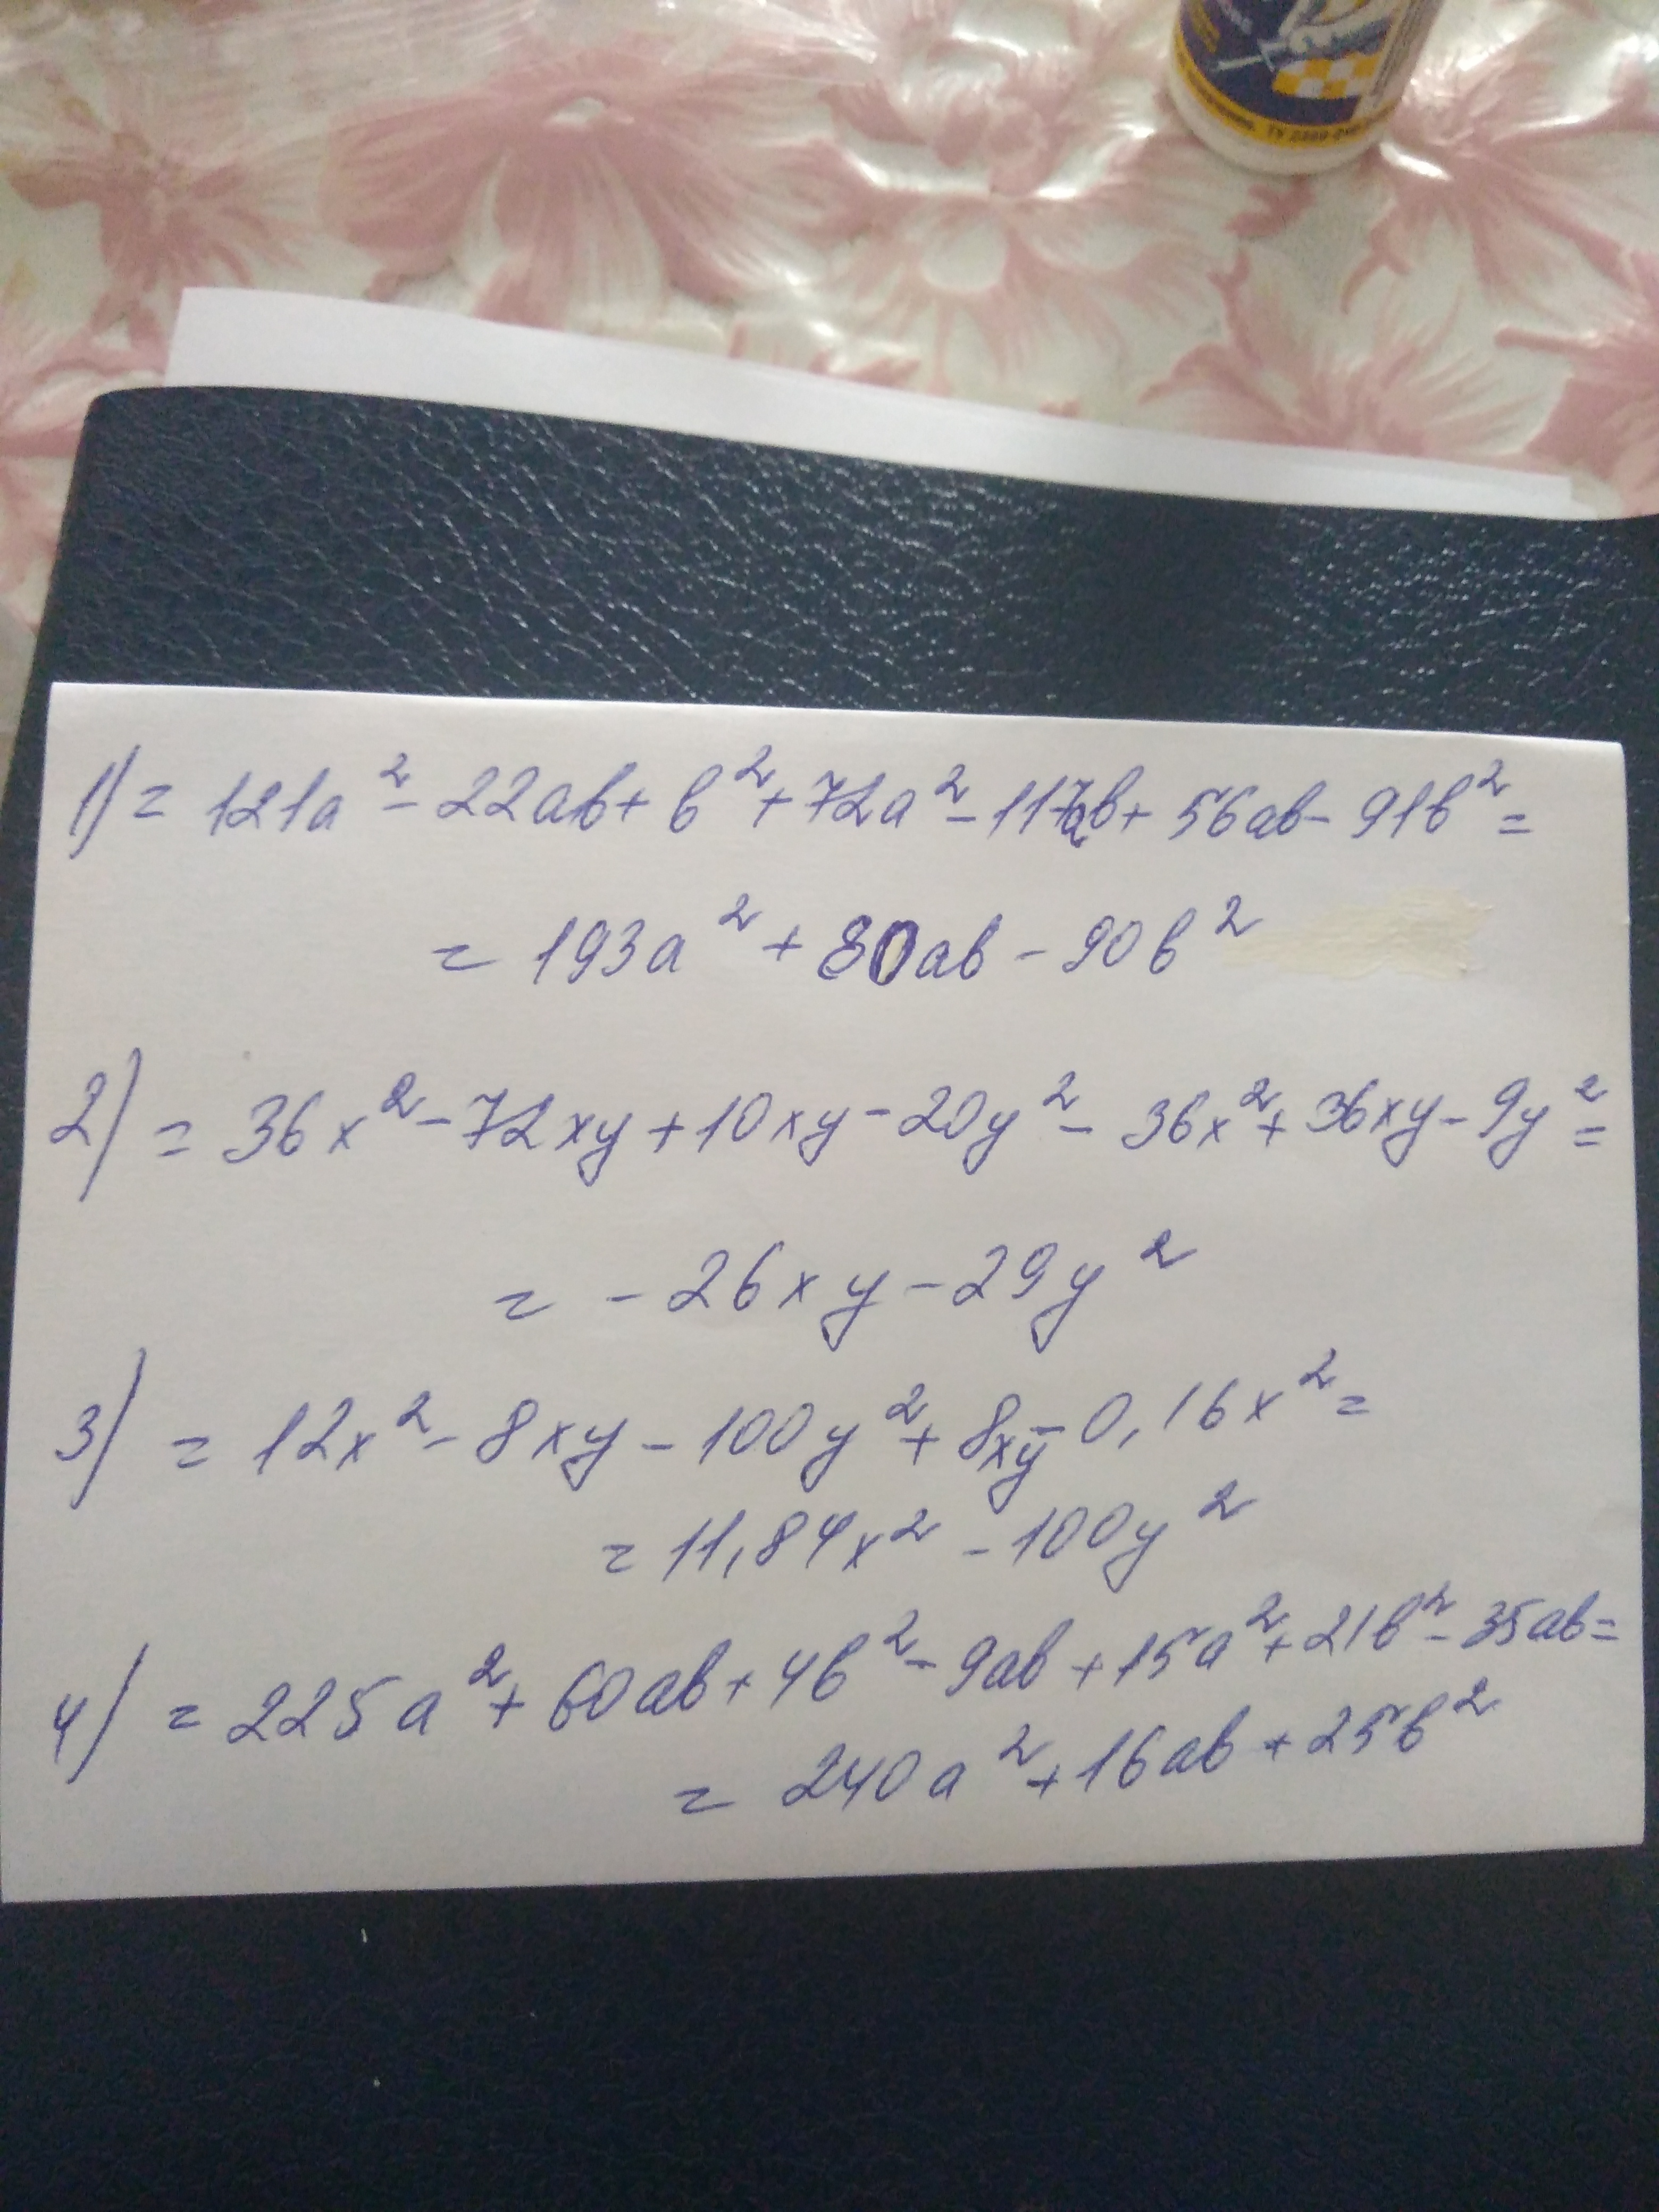 ТУ 2389-
1) = 121a² - 22ab + b² + 72a² - 117ab + 56ab - 91b² =
= 193a² + 80ab - 90b²
2) = 36x² - 72xy + 10xy - 20y² - 36x² + 36xy - 9y² =
= - 26xy - 29y²
3) = 12x² - 8xy - 100y² + 8xy - 0,16x² =
= 11,84x² - 100y²
4) = 225a² + 60ab + 4b² - 9ab + 15a² + 21b² - 35ab =
= 240a² + 16ab + 25b²